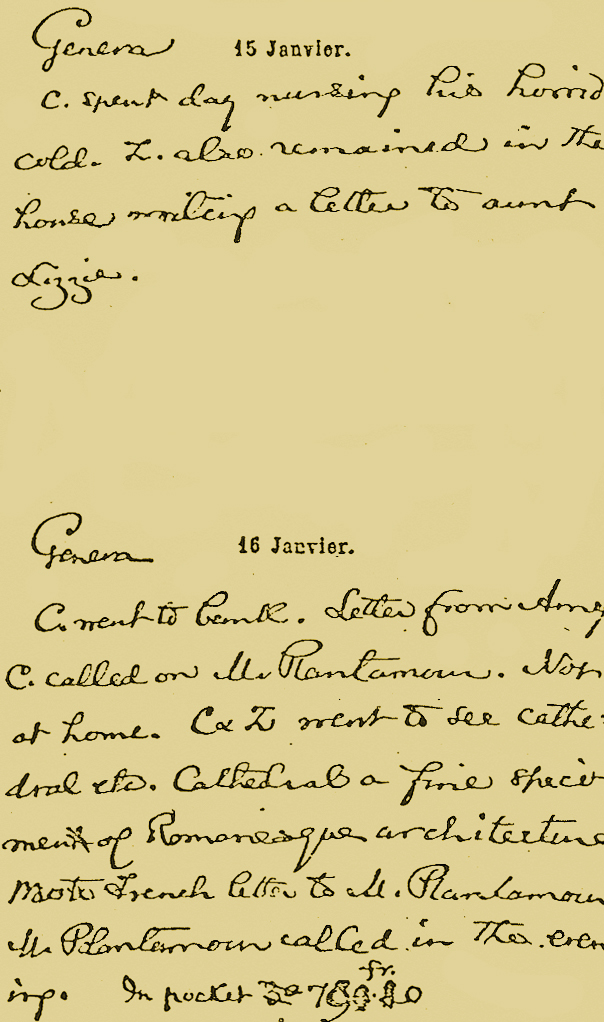 Geneva 15 Janvier.
C. spent day nursing his horrid
cold. Z. also remained in the
house writing a letter to aunt
Lizzie.
Geneva 16 Janvier.
C. went to bank. Letter from Amy
C. called on M. Plantamour. Not
at home. C & Z went to see cathe-
dral etc. Cathedral a fine speci-
men of Romanesque architecture
Wrote French letter to M. Plantamour
M. Plantamour called in the even
ing. In pocket fr.